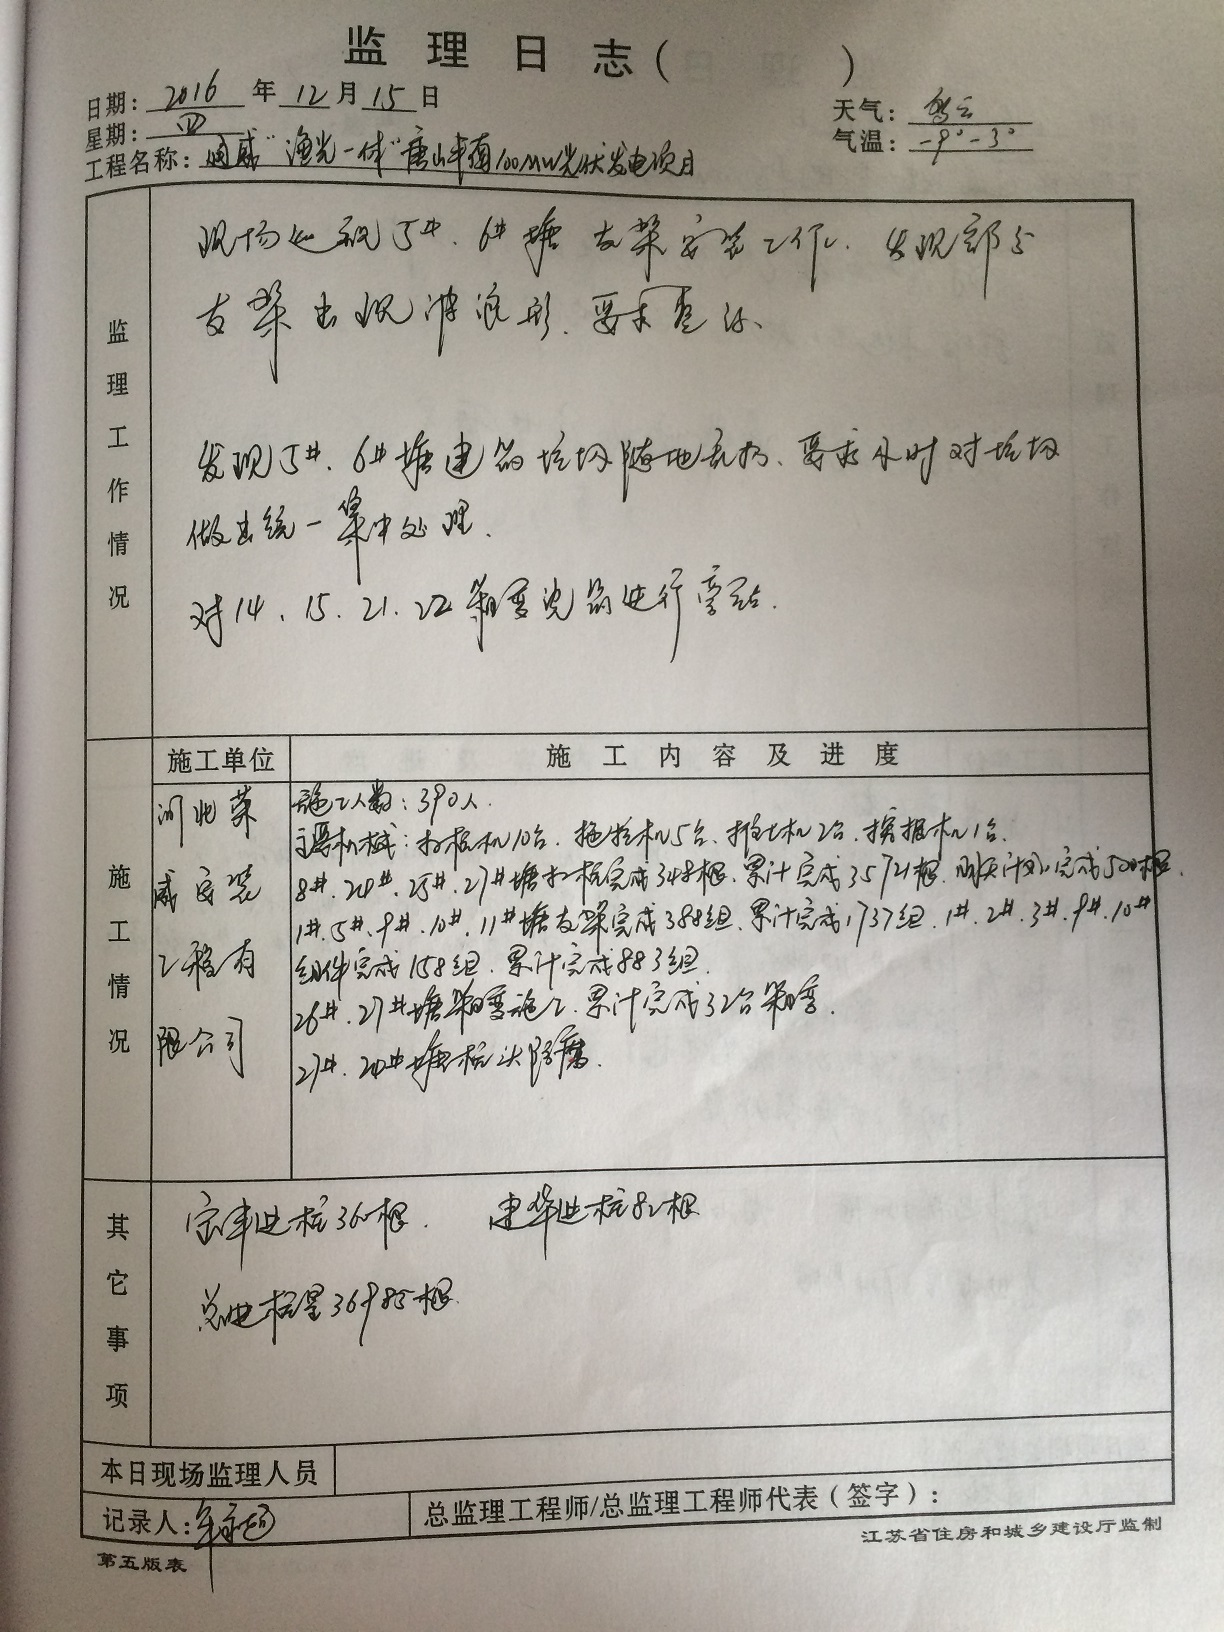 监理日志（ ）
日期：2016年12月15日
天气：多云
星期：四
气温：-9°-3°
工程名称：通威"渔光一体"唐山丰南100MW光伏发电项目
监理工作情况
现场巡视5#、6#塘支架安装工作、发现部分
支架出现波浪形、要求整改、
发现5#、6#塘建筑垃圾随地乱扔、要求及时对垃圾
做出统一集中处理.
对14、15、21、22箱变浇筑进行旁站.
施工情况
施工单位
施工内容及进度
河北荣
威安装
工程有
限公司
施工人数：390人.
主要机械：打桩机10台、拖拉机5台、推土机2台、挖掘机1台.
8#、24#、25#、27#塘打桩完成348根、累计完成35721根、明天计划完成500根.
1#、5#、9#、10#、11#塘支架完成388组、累计完成1737组、1#、2#、3#、9#、10#
组件完成158组、累计完成883组.
26#、27#塘箱变施工、累计完成32台箱变.
27#、24#塘桩头防腐.
其它事项
宗丰进桩360根. 建华进桩82根
总进桩量36985根.
本日现场监理人员
记录人：
总监理工程师/总监理工程师代表（签字）：
第五版表
江苏省住房和城乡建设厅监制